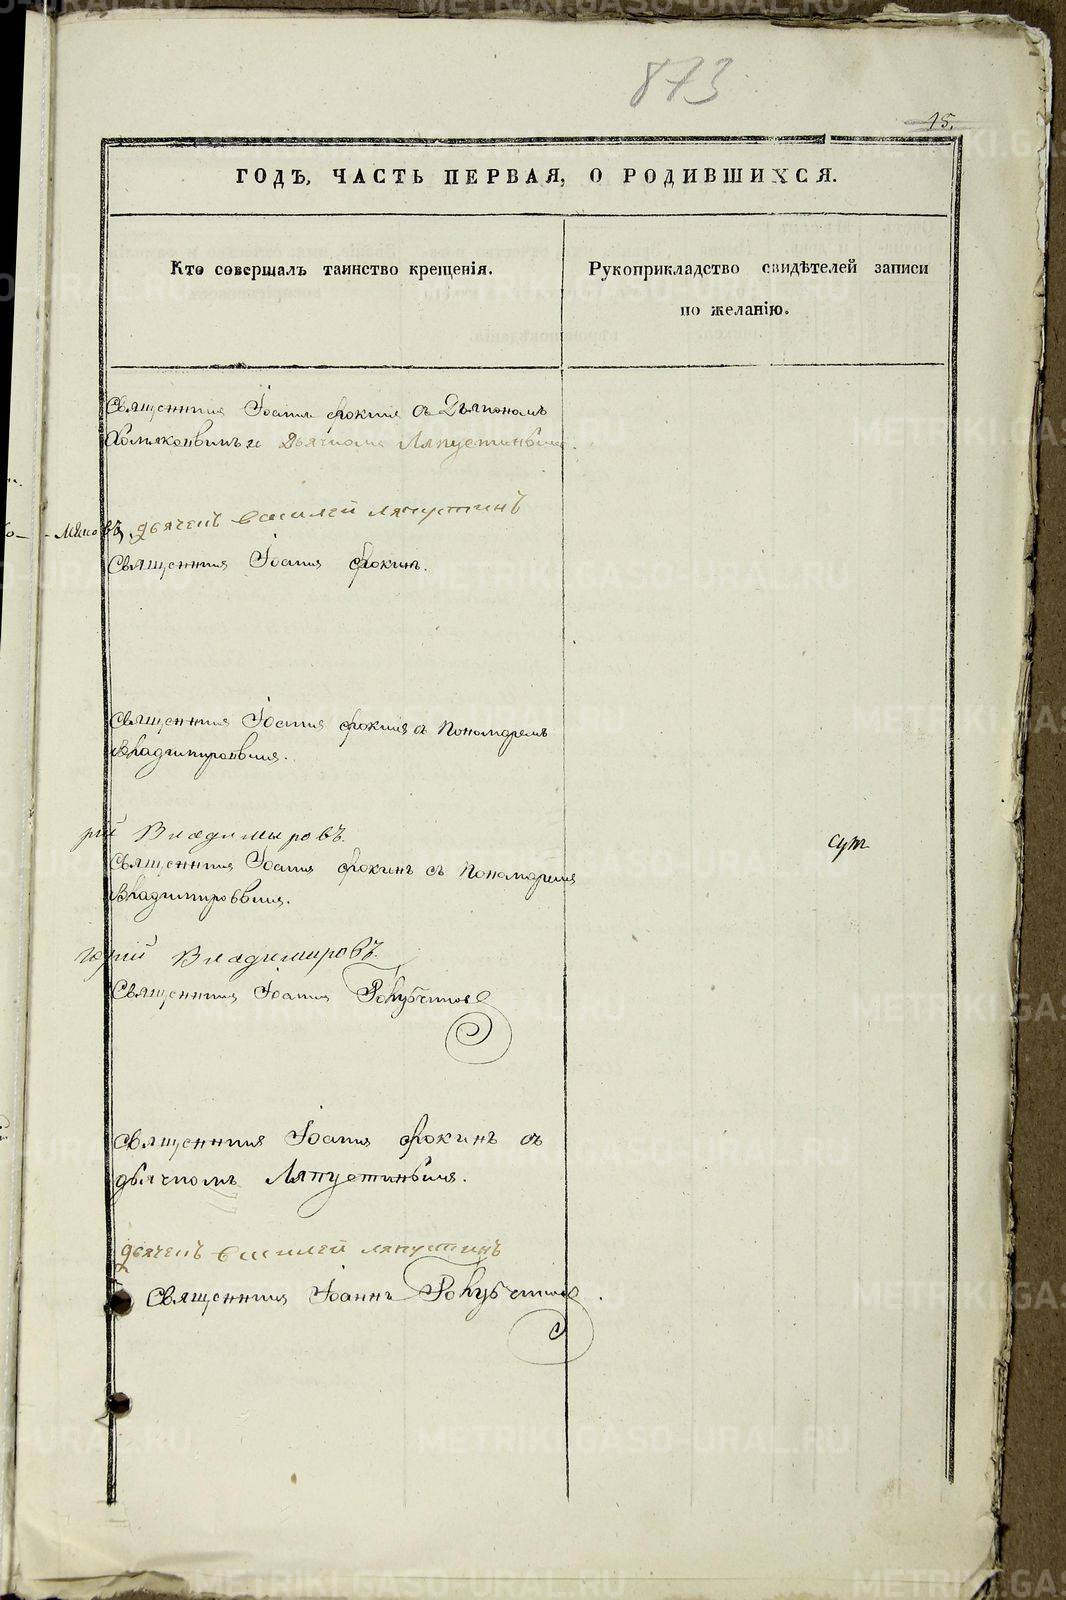 873
15.
ГОДЪ, ЧАСТЬ ПЕРВАЯ, О РОДИВШИХСЯ.
Кто совершалъ таинство крещенія.
Рукоприкладство свидѣтелей записи
по желанію.
Священникъ Іоаннъ Фокинъ съ Дьякономъ
Хомяковымъ и Дьячкомъ Ляпустинымъ.
дьячекъ василей ляпустинъ
Священникъ Іоаннъ Фокинъ.
Священникъ Іоаннъ Фокинъ съ Пономаремъ
Владимировымъ.
рій Владимыровъ.
сут
Священникъ Іоаннъ Фокинъ съ Пономаремъ
Владимировымъ.
горій Владимировъ.
Священникъ Іоаннъ
Священникъ Іоаннъ Фокинъ съ
дьячкомъ Ляпустинымъ.
дьячекъ василей ляпустинъ
Священникъ Іоаннъ
METRIKI.GASO-URAL.RU